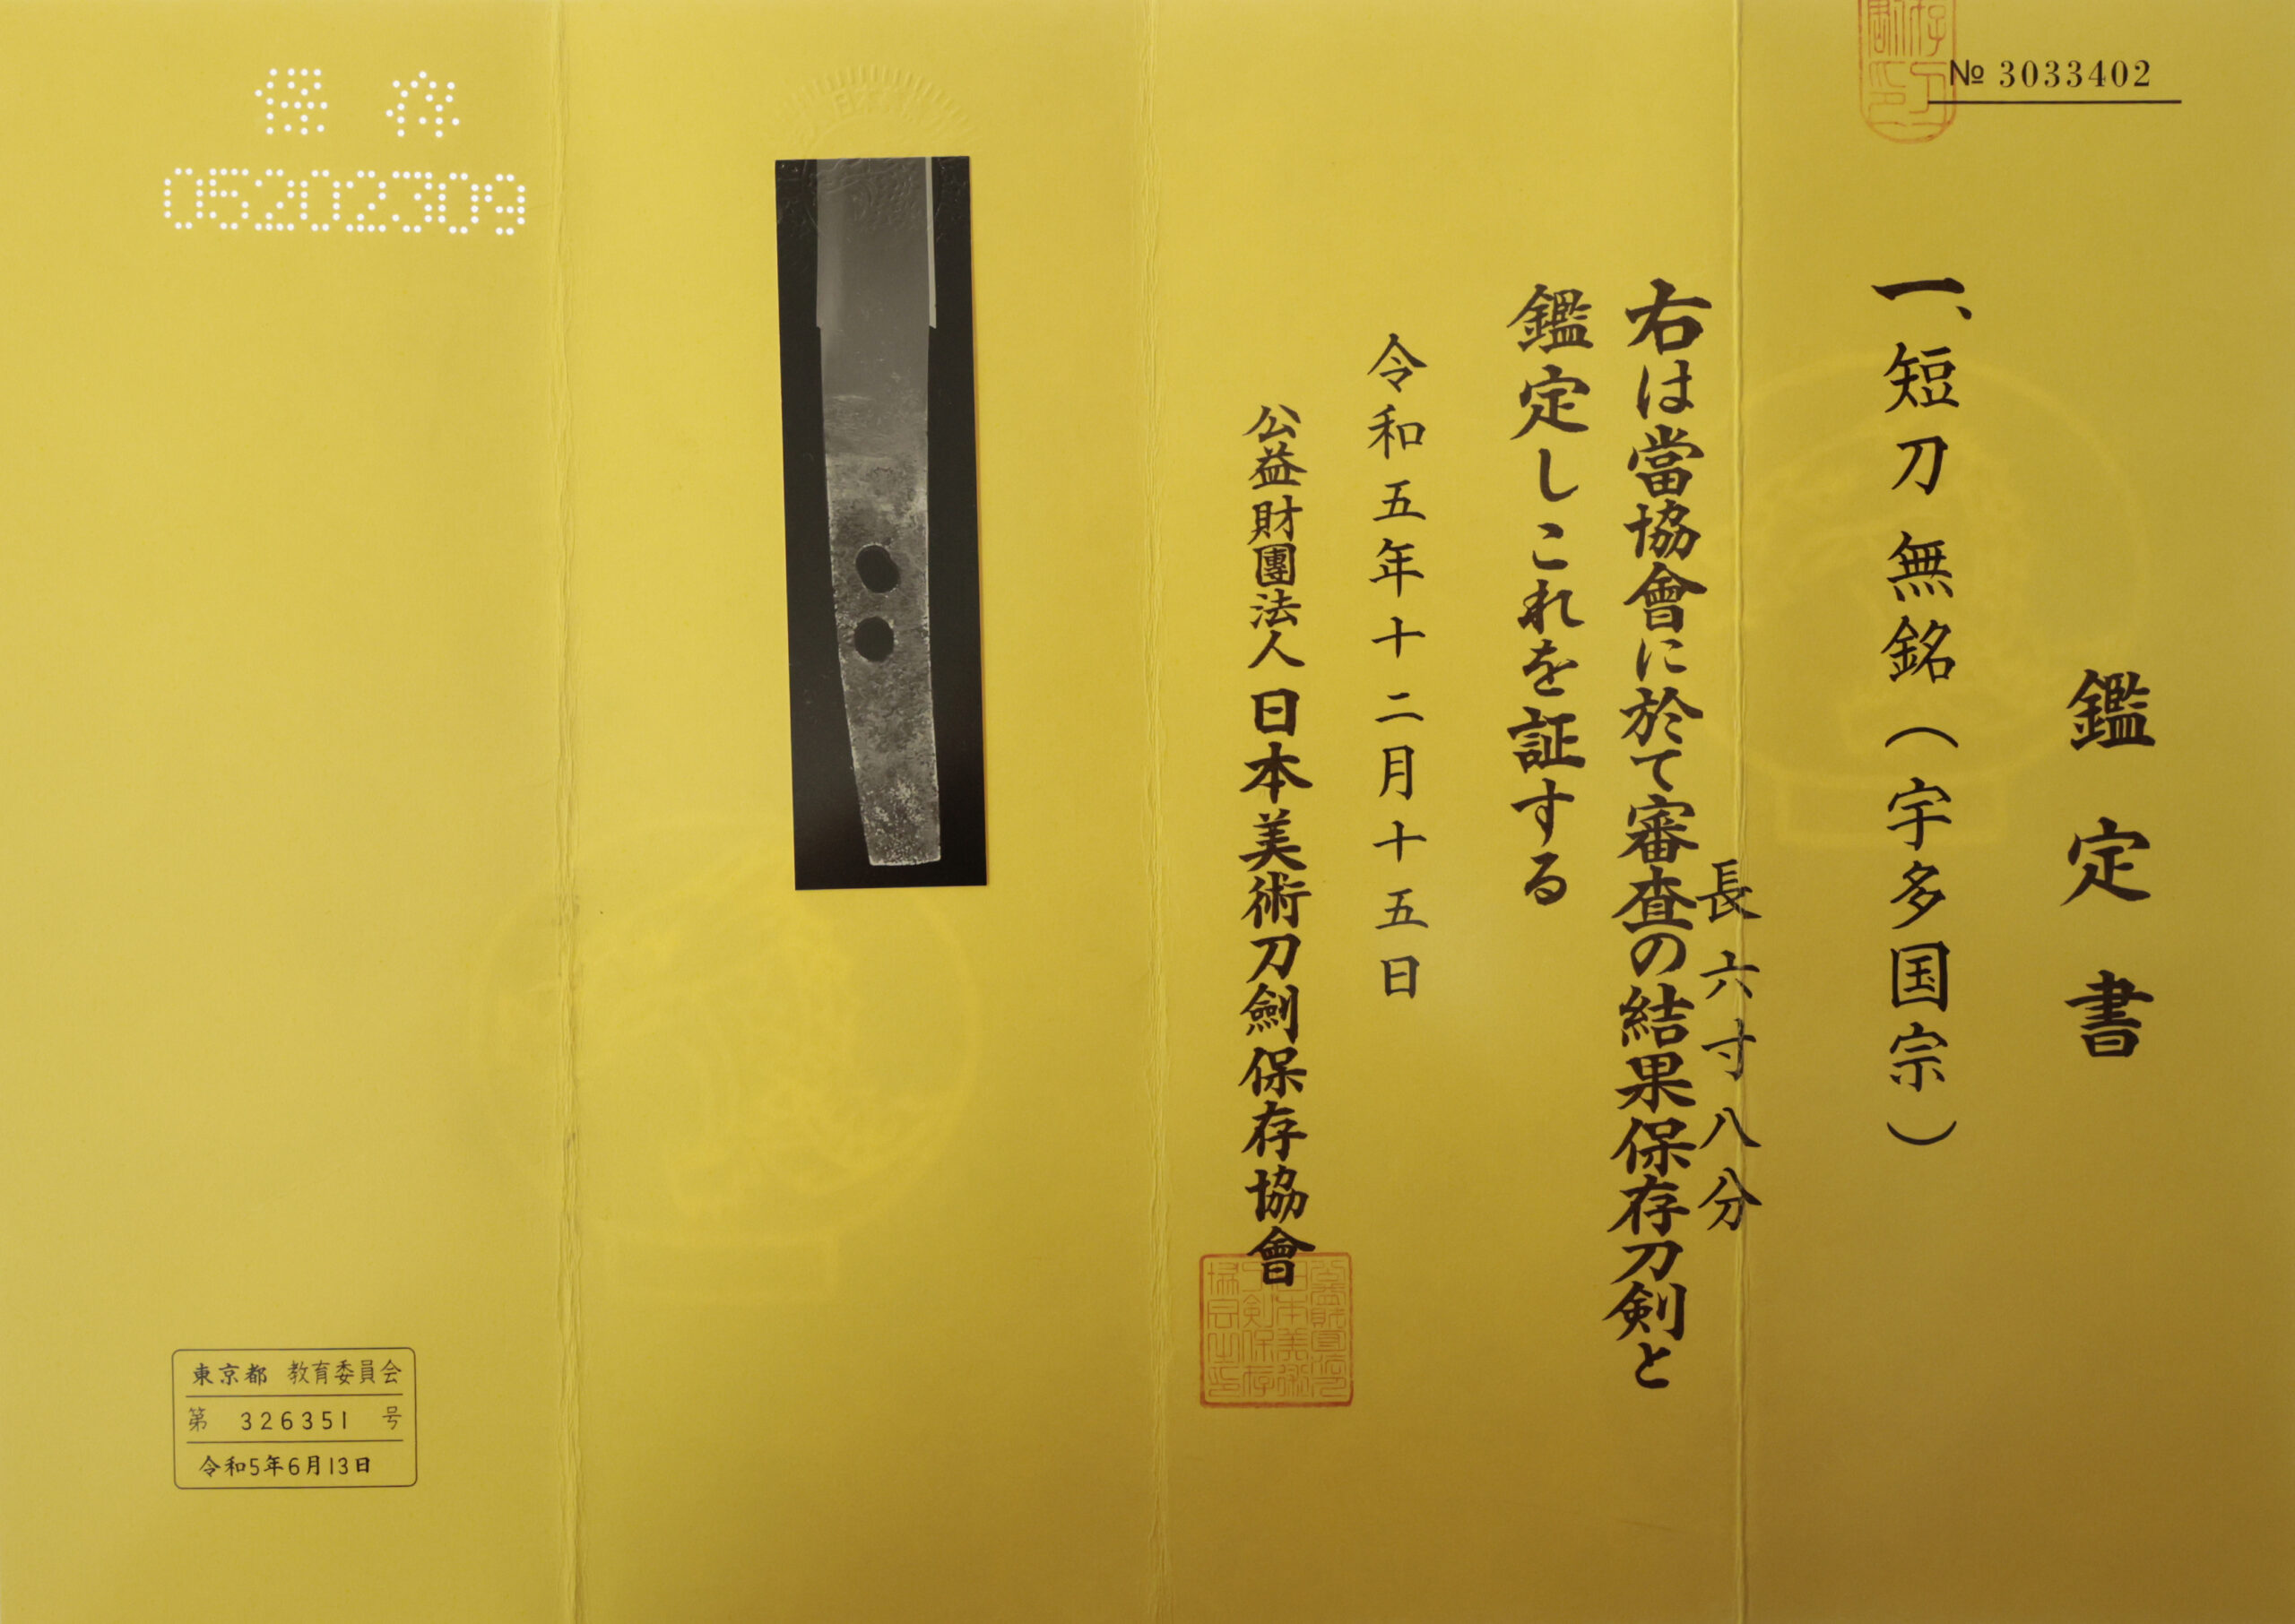 № 3033402
鑑定書
一、短刀 無銘（宇多国宗）
長六寸八分
右は當協會に於て審査の結果保存刀剣と
鑑定しこれを証する
令和五年十二月十五日
公益財團法人 日本美術刀劍保存協會
保存
05202309
東京都 教育委員会
第 326351 号
令和5年6月13日